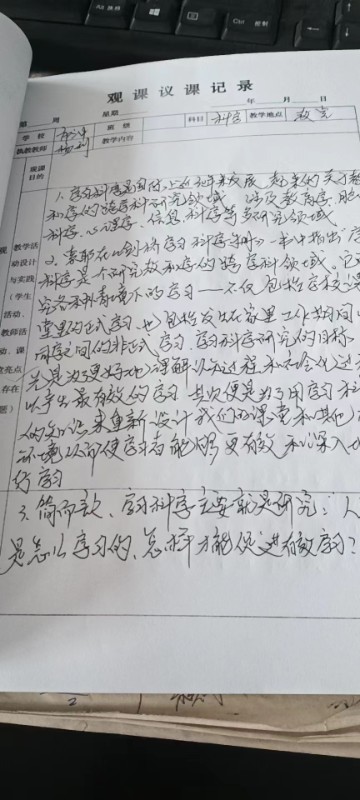 观课议课记录
周 星期 年 月 日
学校 班级 科目 科学 教学地点 教室
执教教师 杨利 教学内容
观课
目的
1. 学习科学是国际上近年来发展起来的关于教
和学的跨学科研究领域 涉及教育学、脑
科学、心理学、信息科学等多研究领域
观 教学活
动设计
与实践
(学生
活动、
教师活
动、课
堂亮点
存在
题)
2. 索耶在《剑桥学习科学手册》一书中指出“学
科学是个研究教和学的跨学科领域。它
究各种情境下的学习——不仅包括学校课
堂里的正式学习,也包括发生在家里、工作期间
同学之间的非正式学习。学习科学研究的目标,
先是为更好地理解认知过程和社会化过
以产生最有效的学习 其次便是为了用学习科
的知识来重新设计我们的课堂和其他
环境,从而使学习者能够更有效和深入地
行学习
3. 简而言之,学习科学主要就是研究:人
是怎么学习的,怎样才能促进有效学习?